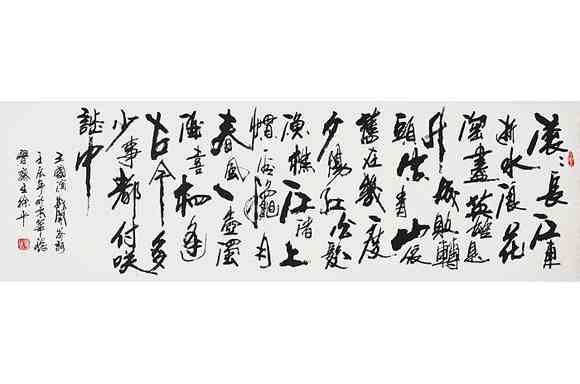 滚〻長江東
逝水浪花
淘盡英雄是
非成敗轉
頭空青山依
舊在幾度
夕陽紅白髮
漁樵江渚上
慣看秋月
春風一壺濁
酒喜相逢
古今多
少事都付笑
談中
三國演義開篇詞
壬辰年